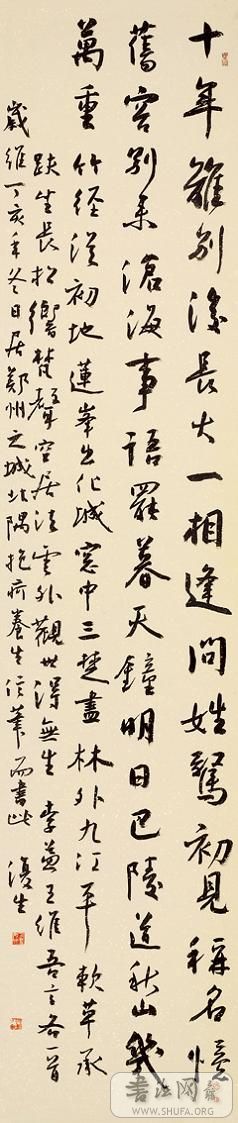 十年離別後長大一相逢問姓驚初見稱名憶
舊容別來滄海事語罷暮天鐘明日巴陵道秋山幾
萬重竹徑從初地蓮峰出化城窗中三楚盡林外九江平軟草承
趺坐長松響梵聲空居法雲外觀世得無生李益王維吾言各一首
歲維丁亥年冬日居鄭州之城北隅抱疴養生信筆而書此 生
書法网
WWW.SHUFA.ORG